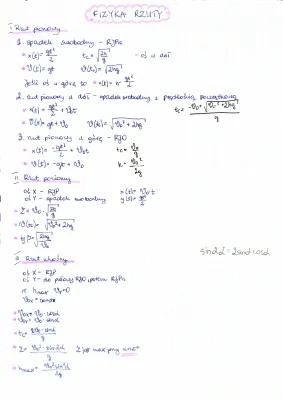 FIZYKA RZUTY
I Rzut pionowy
1. spadek swobodny - RJPs
• x(t) = gt²/2 tc = √(2h/g) - oś w dół
• v(t) = gt v(tc) = √(2hg)
Jeśli oś w górę to • x(t) = h - gt²/2
2. rzut pionowy w dół - spadek swobodny z prędkością początkową
• x(t) = gt²/2 + v₀t tc = (-v₀ + √(v₀² + 2hg))/g
• v(t) = gt + v₀ v(tc) = √(v₀² + 2hg)
3. rzut pionowy w górę - RJO
• x(t) = -gt²/2 + v₀t tc = v₀/g
• v(t) = -gt + v₀ h = v₀²/2g
II Rzut poziomy
oś X - RJP x(t) = v₀t
oś Y - spadek swobodny y(t) = gt²/2
• Z = v₀ · √(2h/g)
• v(tc) = √(v₀² + 2hg)
• tg β = √(2hg)/v₀
III Rzut ukośny
oś X - RJP
oś Y - do połowy RJO, potem RJPs
w hmax vy = 0
v₀x = const
• v₀x = v₀ · cosα
• v₀y = v₀ · sinα
sin2α = 2sinα·cosα
• tc = 2v₀ · sinα/g
• Z = v₀² · sin2α/g
• hmax = v₀² sin²α/2g